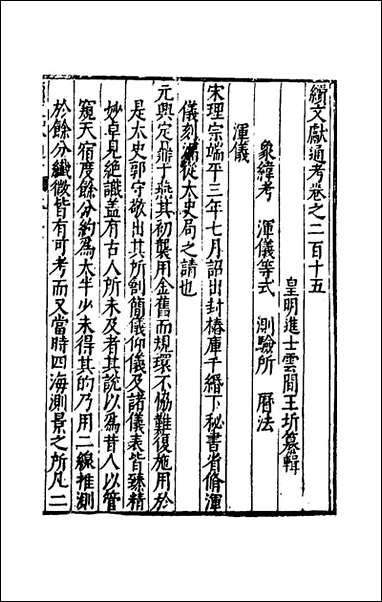 續文獻通考卷之二百十五
皇明進士雲間王圻纂輯
象緯考 渾儀等式 測驗所 曆法
渾儀
宋理宗端平三年七月詔出封樁庫千緡下秘書省脩渾
儀刻漏從太史局之請也
元興定鼎于燕其初襲用金舊而規環不恊難復施用於
是太史郭守敬出其所創簡儀仰儀及諸儀表皆臻精
妙卓見絶識盖有古人所未及者其說以爲昔人以管
窺天宿度餘分約爲太半少未得其的乃用二線推測
於餘分纖微皆有可考而又當時四海測景之所凡二